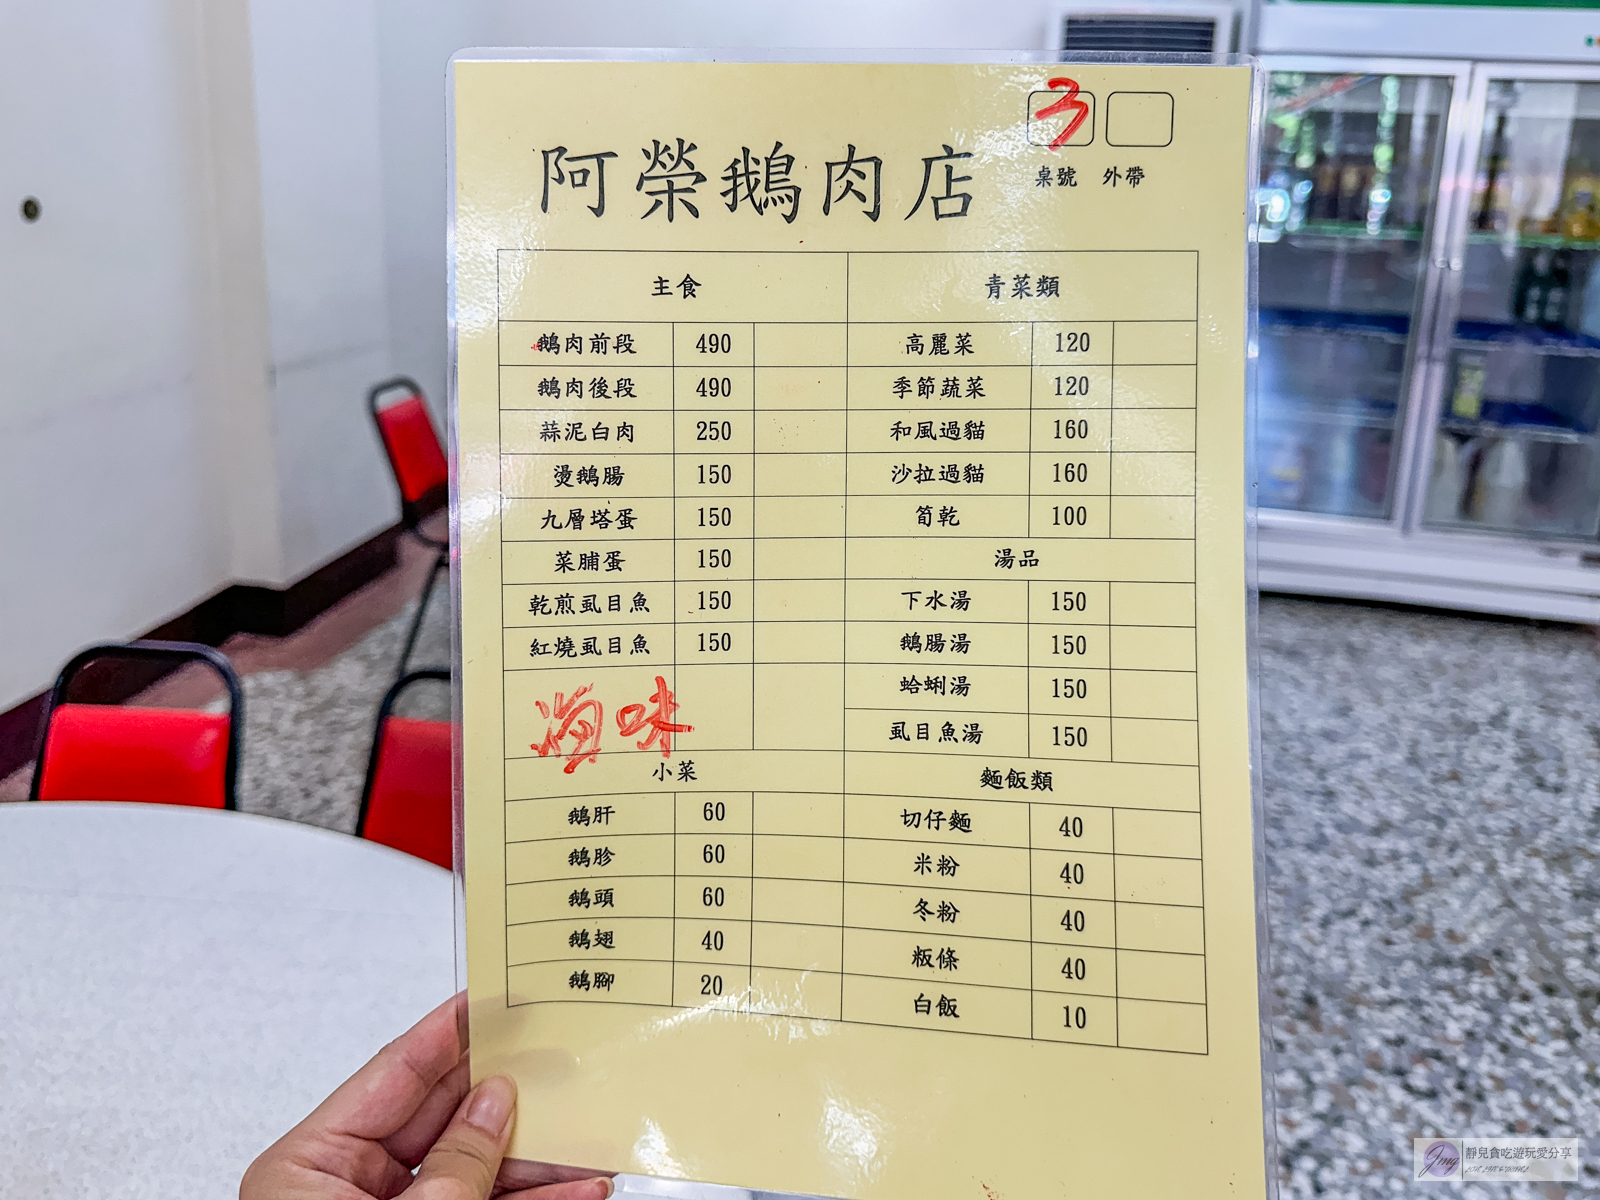 3
桌號 外帶
阿榮鵝肉店
主食
鵝肉前段 490
鵝肉後段 490
蒜泥白肉 250
燙鵝腸 150
九層塔蛋 150
菜脯蛋 150
乾煎虱目魚 150
紅燒虱目魚 150
海味
小菜
鵝肝 60
鵝胗 60
鵝頭 60
鵝翅 40
鵝腳 20
青菜類
高麗菜 120
季節蔬菜 120
和風過貓 160
沙拉過貓 160
筍乾 100
湯品
下水湯 150
鵝腸湯 150
蛤蜊湯 150
虱目魚湯 150
麵飯類
切仔麵 40
米粉 40
冬粉 40
粄條 40
白飯 10
靜兒貪吃遊玩愛分享